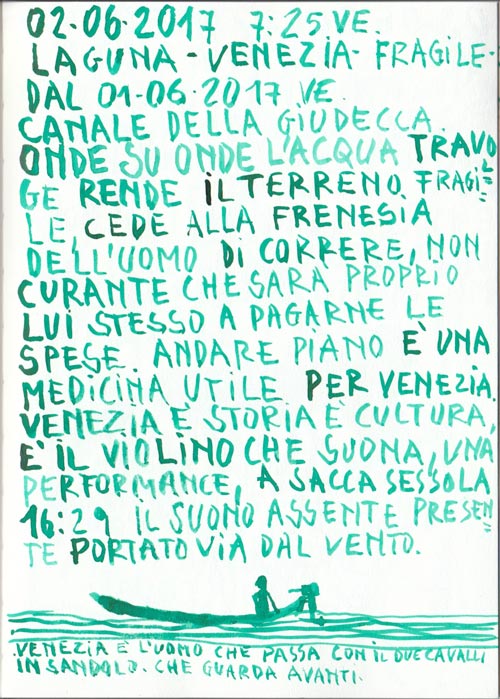 02.06.2017 7:25 VE.
LAGUNA-VENEZIA-FRAGILE-
DAL 01-06.2017 VE.
CANALE DELLA GIUDECCA.
ONDE SU ONDE L'ACQUA TRAVOL=
GE RENDE IL TERRENO FRAGI=
LE, CEDE ALLA FRENESIA
DELL'UOMO DI CORRERE, NON
CURANTE CHE SARÀ PROPRIO
LUI STESSO A PAGARNE LE
SPESE. ANDARE PIANO È UNA
MEDICINA UTILE PER VENEZIA.
VENEZIA È STORIA È CULTURA,
È IL VIOLINO CHE SUONA, UNA
PERFORMANCE, A SACCA SESSOLA
16:29 IL SUONO ASSENTE PRESEN=
TE PORTATO VIA DAL VENTO.
.VENEZIA È L'UOMO CHE PASSA CON IL DUE CAVALLI
IN SANDOLO. CHE GUARDA AVANTI.